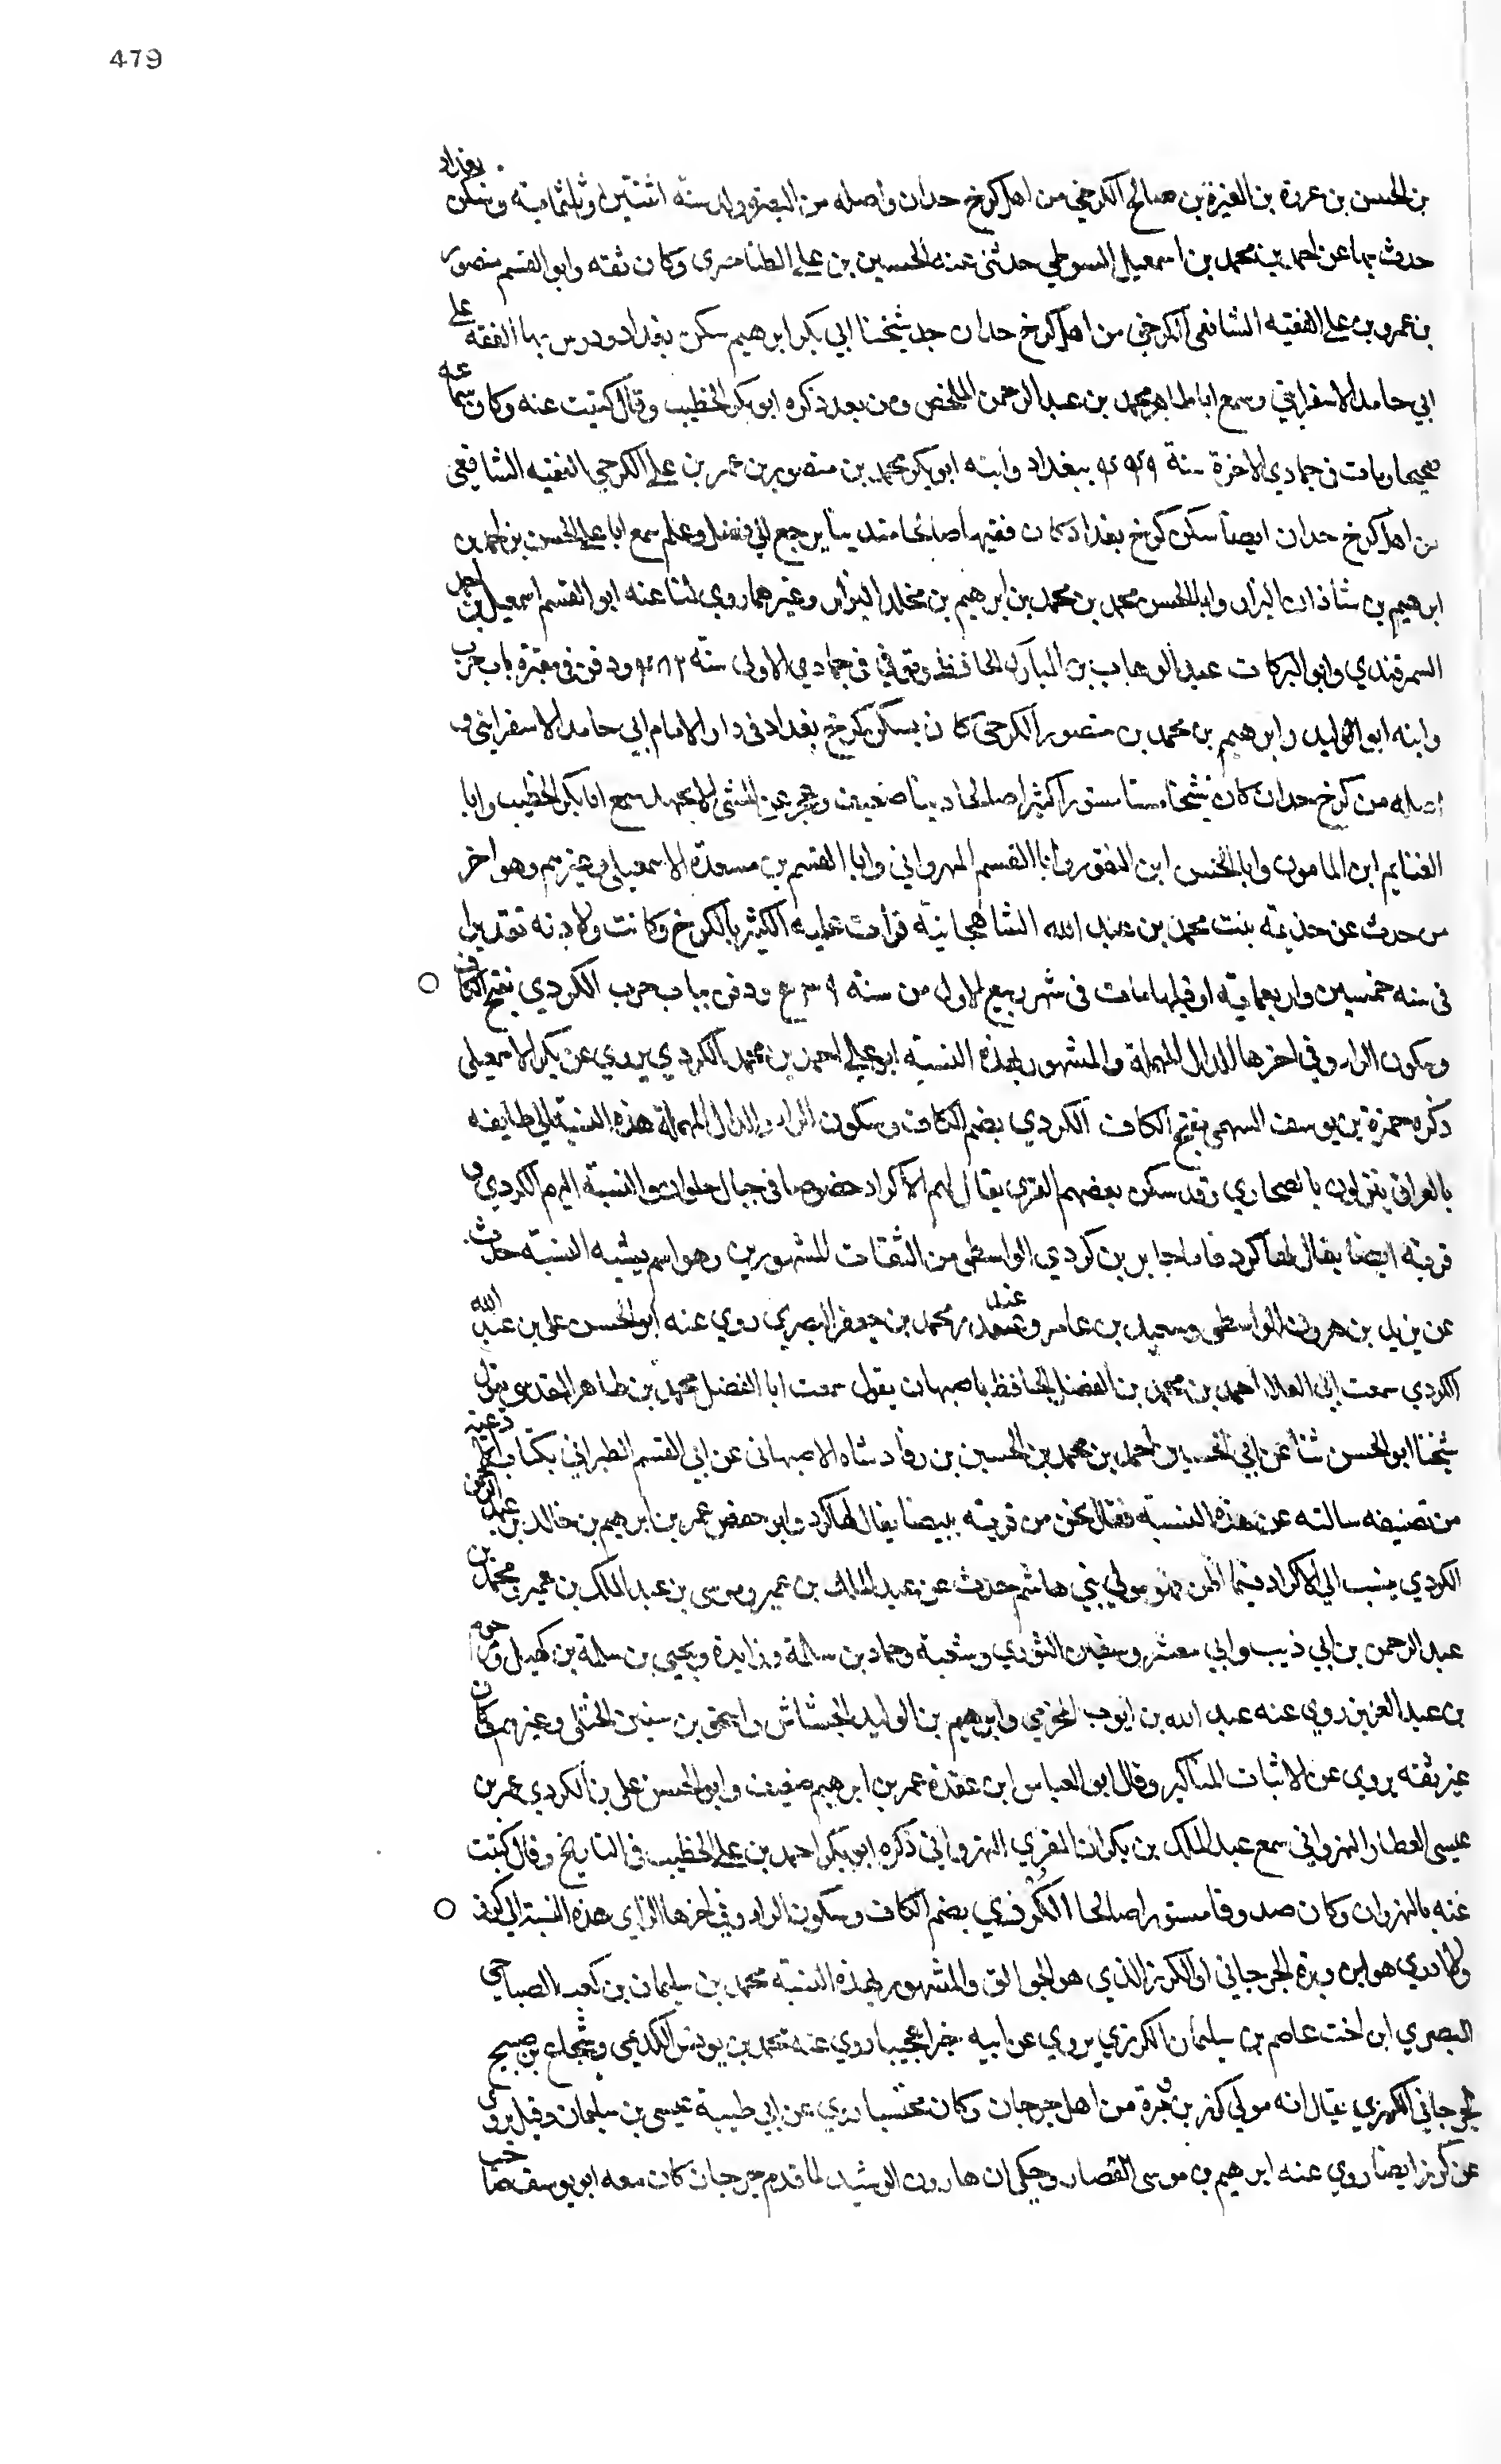 479
بن الحسن بن عروة بن المغيرة بن صالح الكرخي من اهل كرخ جدان واصله من البصرة وولد سنة اثنتين وثلثماية وسكن بغداد
حدث بها عن احمد بن محمد بن اسمعيل السوطي حدثني عنه الحسين بن علي الطناجيري وكان ثقه وابو القسم منصور
بن عمر وبن علي الفقيه الشافعي الكرخي من اهل كرخ جدان جد شيخنا ابي بكر ابرهيم سكن بغداد ودرس بها الفقه علي
ابي حامد الاسفرايني وسمع ابا طاهر محمد بن عبد الرحمن المخلص ومن بعده ذكره ابو بكر الخطيب وقال كتبت عنه وكان سماعه
صحيحا ومات في جمادي الاخرة سنة ببغداد وابنه ابو بكر محمد بن منصور بن عمر بن علي الكرخي الفقيه الشافعي
من اهل كرخ جدان ايضا سكن كرخ بغداد كان فقيها صالحا متدينا يرجع الي فضل وعلم سمع ابا علي الحسن بن احمد بن
ابرهيم بن شاذان البزاز وابا الحسن محمد بن محمد بن ابرهيم بن مخلد البزاز وغيرهما روي لنا عنه ابو القسم اسمعيل بن احمد
السمرقندي وابو البركات عبد الوهاب بن المبارك الحافظ وتوفي في جمادي الاولي سنة ودفن في مقبرة باب حرب
وابنه ابو الوليد ابرهيم بن محمد بن منصور الكرخي كان يسكن بكرخ بغداد في دار الامام ابي حامد الاسفرايني و
اصله من كرخ جدان كان شيخا مسنا مستورا كثيرا صالحا دينا ضعيف وعجز عن المشي الا بجهد سمع ابا بكر الخطيب وابا
الغنايم ابن المامون وابا الحسن ابن النقور وابا القسم المهرواني وابا القسم بن مسعدة الاسمعيلي وغيرهم وهو اخر
من حدث عن خديجة بنت محمد بن عبد الله الشاهجانيه قرات عليه الكثير بالكرخ وكانت ولادته تقديرا
في سنه خمسين واربعماية او قبلها مات في شهر ربيع الاول من سنة ودفن بباب حرب الكردي بفتح الكاف
وسكون الراء وفي اخرها الدال المهملة والمشهور بهذه النسبة ابو علي احمد بن محمد الكردي يروي عن بكر الاسمعيلي
ذكره حمزة بن يوسف السهمي بفتح الكاف الكردي بضم الكاف وسكون الراء والدال المهملة هذه النسبة الي طايفه
بالعراق ينزلون بالصحاري وقد سكن بعضهم القري يقال لهم الاكراد خصوصا في جبال حلوان والنسبة اليهم الكردي و
قرية ايضا يقال لها كرد فاما جابر بن كردي الواسطي من الثقات المشهورين وهو اسم يشبه النسبة حدث
عن يزيد بن هرون الواسطي وسعيد بن عامر وغندر محمد بن جعفر البصري روي عنه ابو الحسن علي بن عبد الله
الكردي سمعت ابي العلا احمد بن محمد بن الفضل الحافظ باصبهان يقول سمعت ابا الفضل محمد بن طاهر المقدسي يقول
شيخنا ابو الحسن ثنا عن ابي الحسين احمد بن محمد بن الحسين بن فاد شاه الاصبهاني عن ابي القسم الطبراني بكتاب الادعية
من تصنيفه سالته عن هذه النسبة فقال نحن من قرية ببيضا يقال لها كرد وابو حفص عمر بن ابرهيم بن خالد بن عبد الرحمن
الكردي ينسب الي الاكراد فيما اظن وهو مولي بني هاشم حدث عن عبد الملك بن عمير وموسي بن عبد الملك بن عمير ومحمد بن
عبد الرحمن بن ابي ذيب وابي معشر وسفين الثوري وشعبة وحماد بن سلمة وزايدة ويحيي بن سلمة بن كهيل و
بن عبد العزيز روي عنه عبد الله بن ايوب المخرمي وابرهيم بن الوليد الجشاش واسحق بن سنين الختلي وغيرهم وكان
غير ثقه يروي عن الاثبات المناكير وقال ابو العباس ابن عقدة عمر بن ابرهيم ضعيف وابو الحسن علي بن الكردي عمر بن
عيسي العطار النهرواني سمع عبد الملك بن بكران المقري النهرواني ذكره ابو بكر احمد بن علي الخطيب في التاريخ وقال كتبت
عنه بالنهروان وكان صدوقا مستورا صالحا الكرزي بضم الكاف وسكون الراء وفي اخرها الزاي هذه النسبة الي كرز
ولا ادري هو ابن وبرة الجرجاني او الكرز الذي هو الجوالق والمشهور بهذه النسبة محمد بن سليمان بن كعب الصباحي
البصري ابن اخت عاصم بن سليمان الكرزي يروي عن ابيه خبرا عجيبا روي عنه محمد بن يونس الكديمي وشجاع بن صبيح
الجرجاني الكرزي يقال انه مولي كرز بن وبرة من اهل جرجان وكان محتسبا يروي عن ابي طيبة عيسي بن سليمان وقيل يروي
عن كرز ايضا روي عنه ابرهيم بن موسي القصار وحكي ان هارون الرشيد لما قدم جرجان كان معه ابو يوسف صاحب